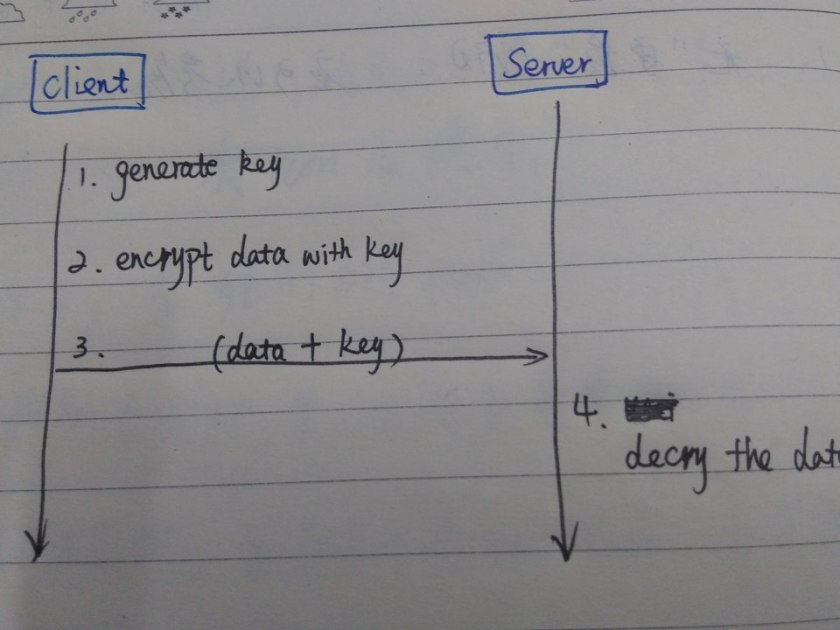 Client
Server
1. generate key
2. encrypt data with key
3. (data + key)
4.
decry the dat